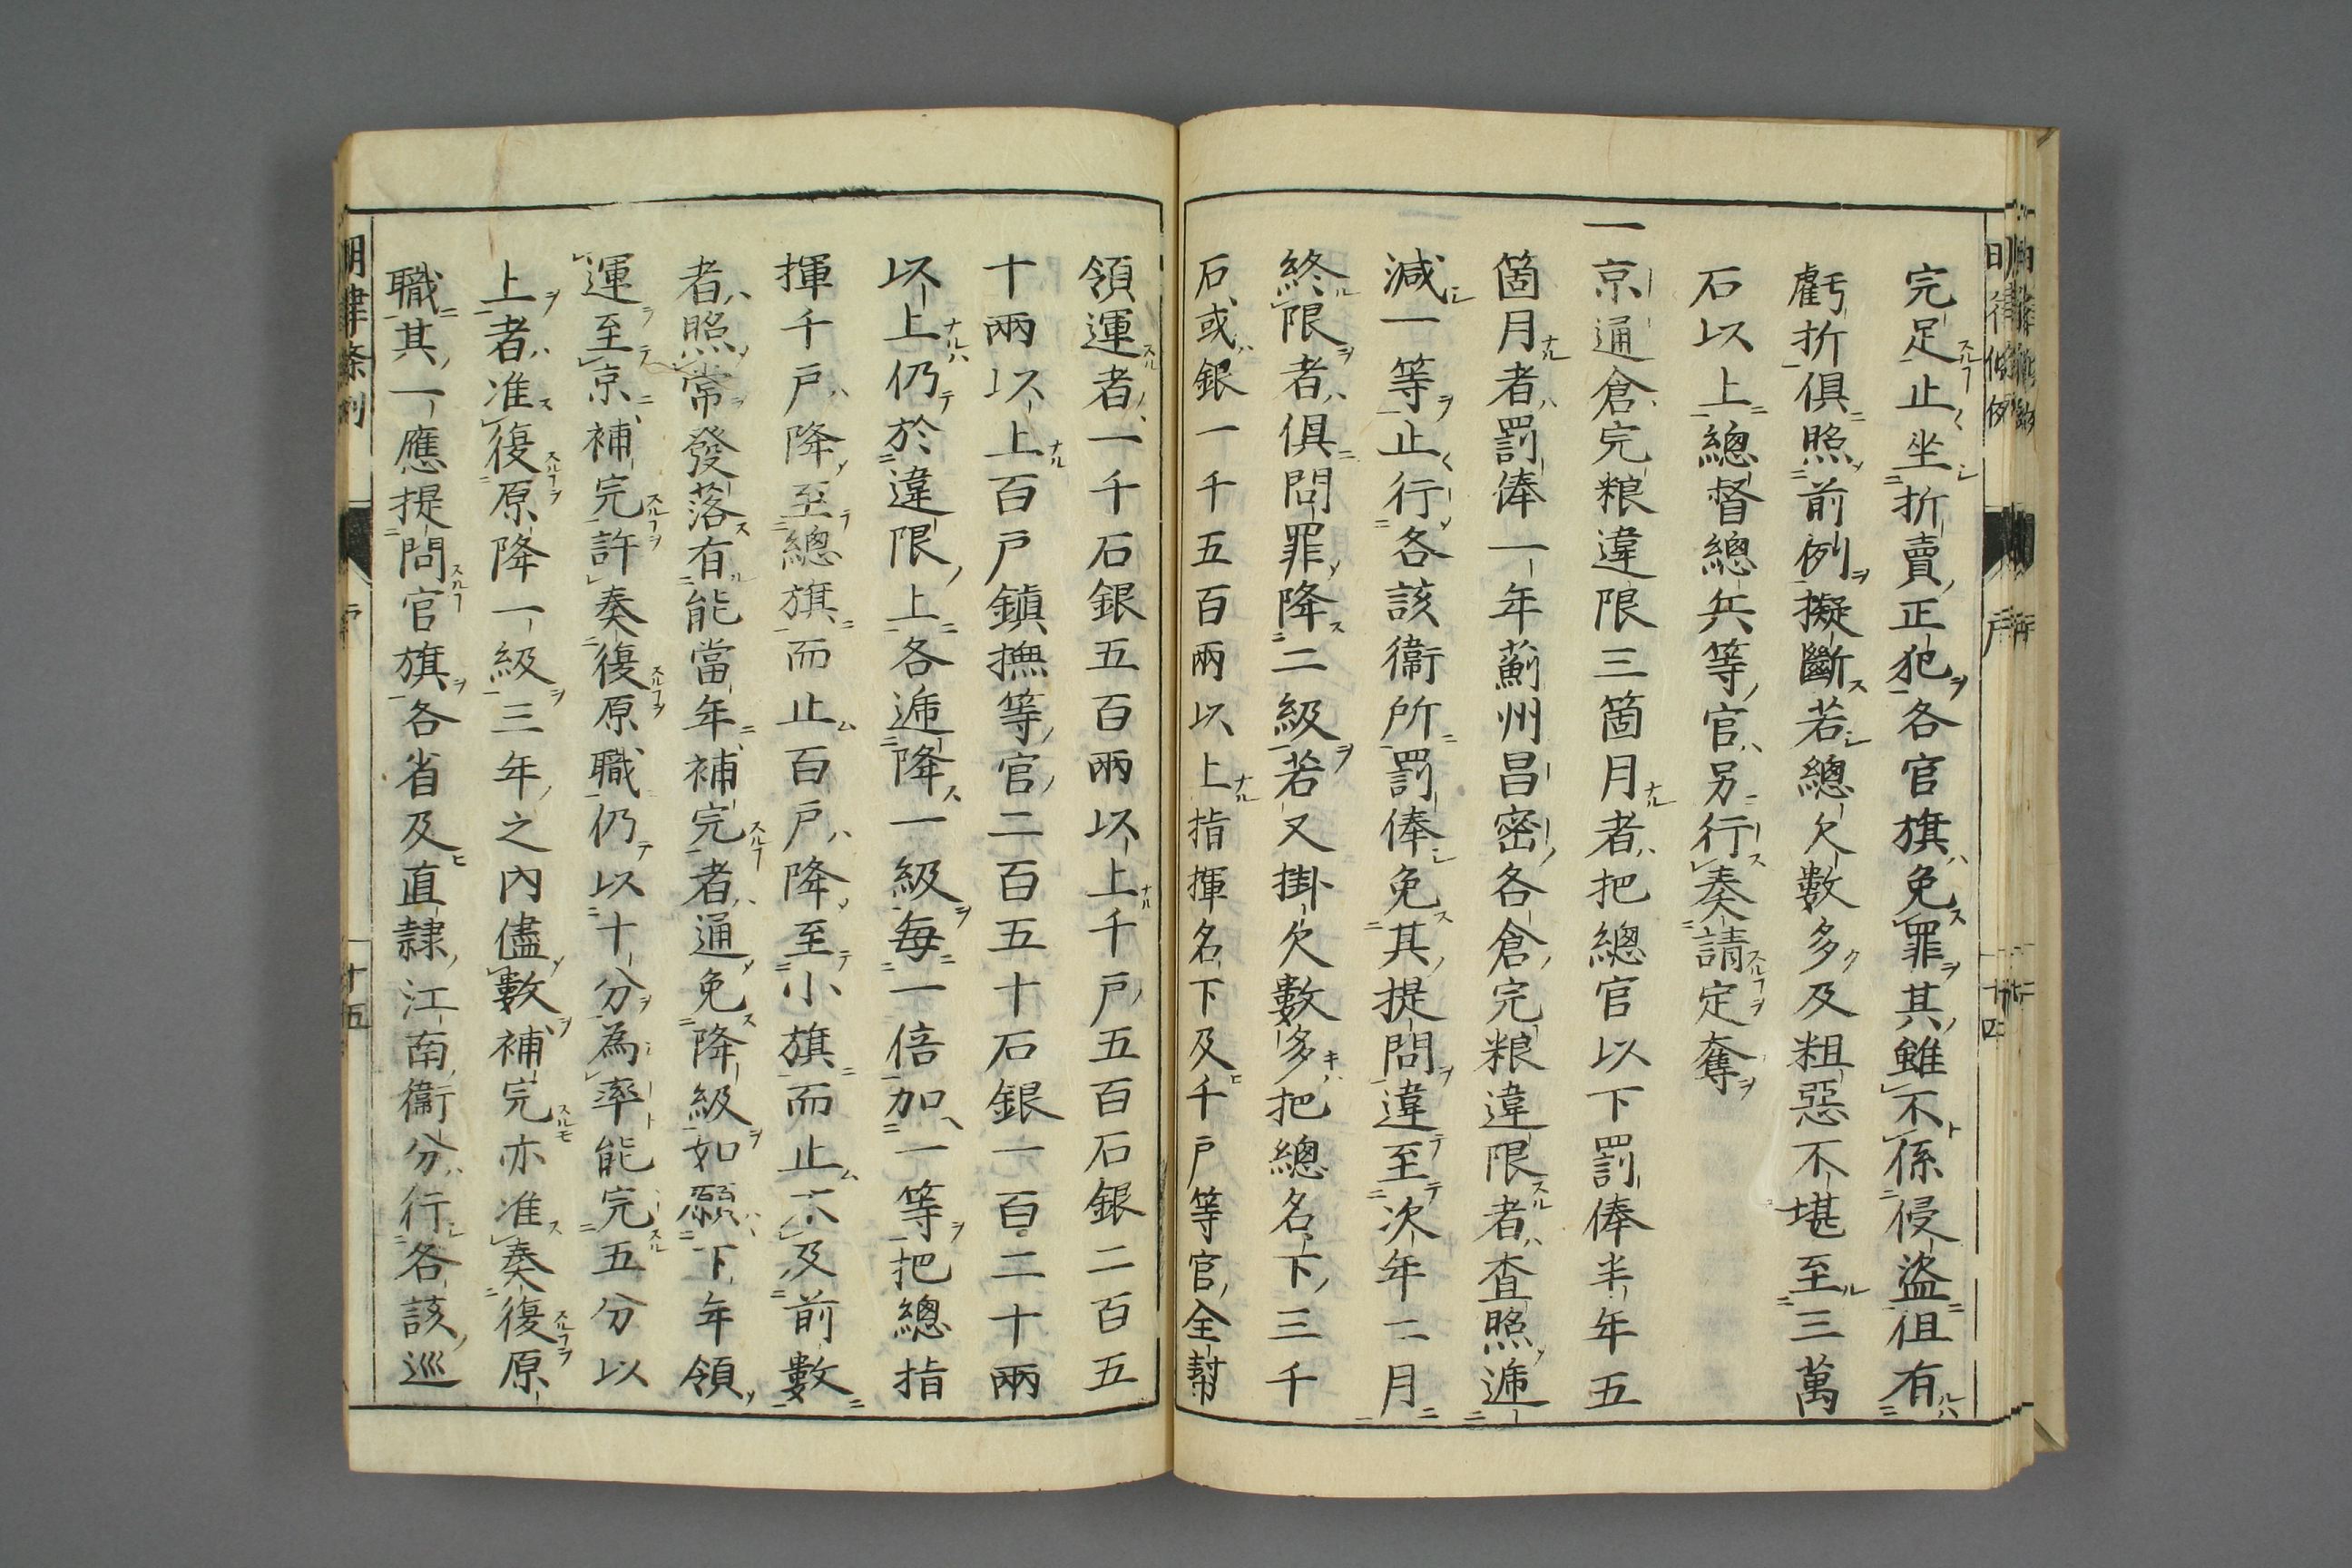 完足止坐折賣正犯各官旗免罪其雖不係侵盜但有
虧折俱照前例擬斷若總欠數多及粗惡不堪至三萬
石以上總督總兵等官另行奏請定奪
一京通倉完粮違限三箇月者把總官以下罰俸半年五
箇月者罰俸一年薊州昌密各倉完粮違限者查照遞
減一等止行各該衞所罰俸免其提問違至次年二月
終限者俱問罪降二級若又掛欠數多把總名下三千
石或銀一千五百兩以上指揮名下及千戶等官全幇
領運者一千石銀五百兩以上千戶五百石銀二百五
十兩以上百戶鎮撫等官二百五十石銀一百二十兩
以上仍於違限上各遞降一級每一倍加一等把總指
揮千戶降至總旗而止百戶降至小旗而止不及前數
者照常發落有能當年補完者通免降級如願下年領
運至京補完許奏復原職仍以十分為率能完五分以
上者准復原降一級三年之內儘數補完亦准奏復原
職其一應提問官旗各省及直隷江南衞分行各該巡
明律條例
戶
十五